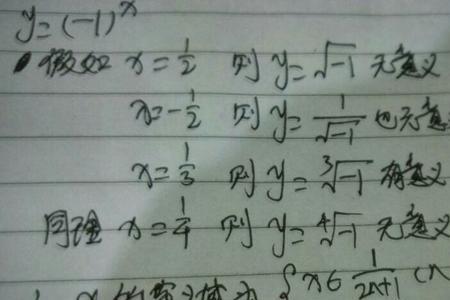 y=(-1)^x
假如 x=1/2 则 y=√-1 无意义
x=-1/2 则 y=1/√-1 也无意
x=1/3 则 y=³√-1 有意义
同理 x=1/4 则 y=⁴√-1 无意义
x 的定义域为 {x∈ 1/2n+1 (n